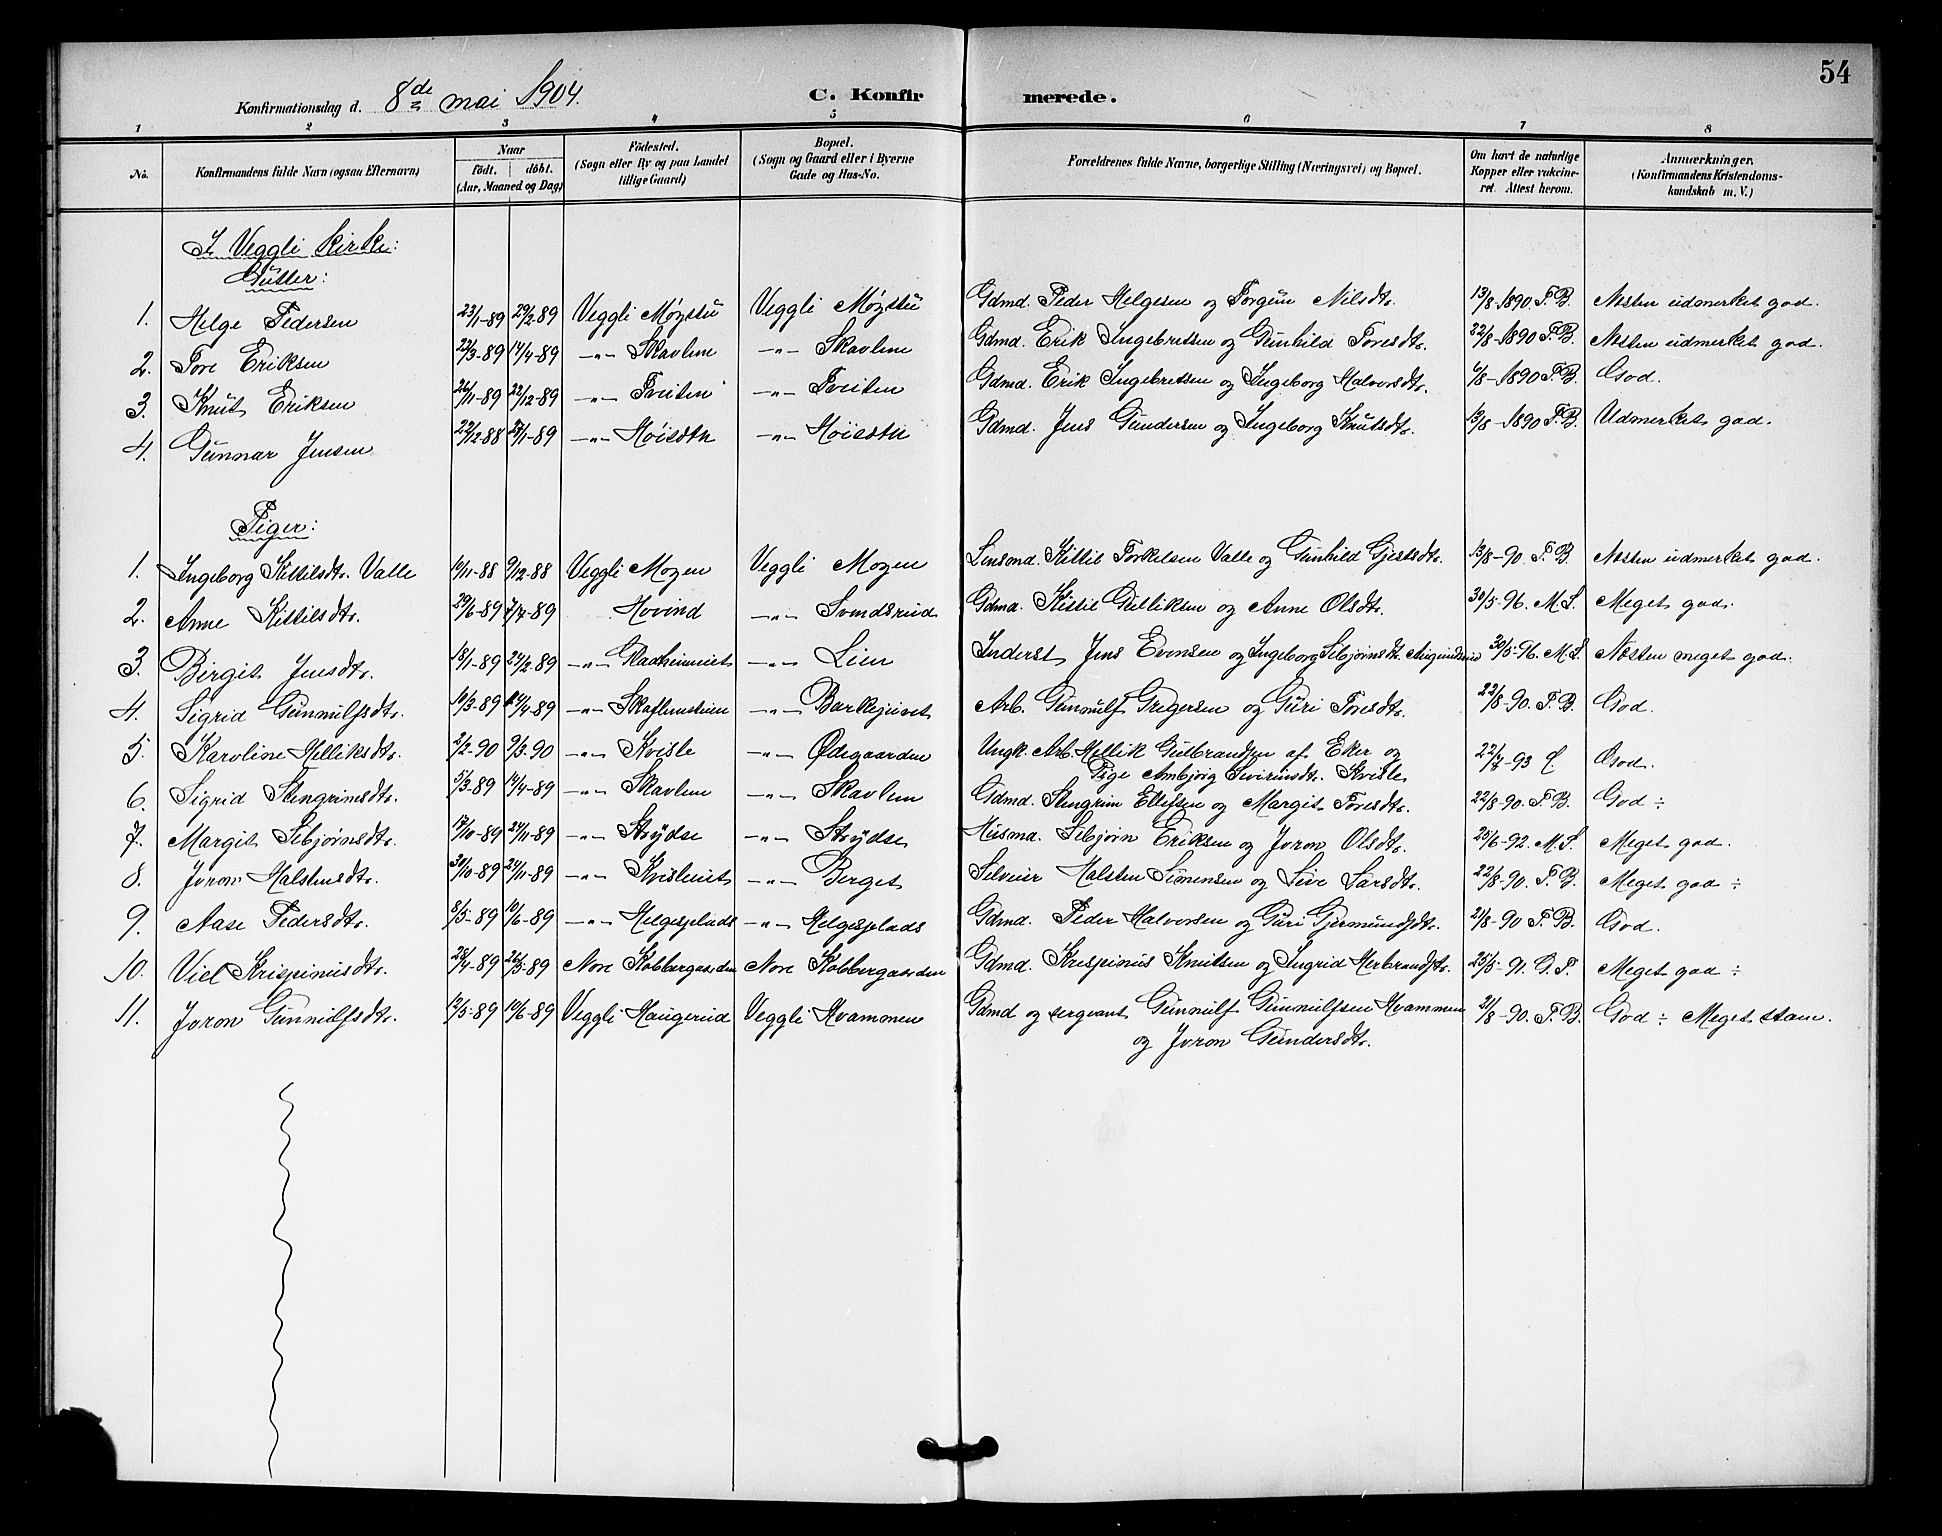 54
Konfirmationsdag d. 8de mai 1904. C. Konfirmerede.
1 2 3 4 5 6 7 8
No. Konfirmandens fulde Navn (ogsaa Efternavn) Naar født. døbt. (Aar, Maaned og Dag) Fødested. (Sogn eller By og paa Landet tillige Gaard) Bopæl. (Sogn og Gaard eller i Byerne Gade og Hus-No. Forældrenes fulde Navne, borgerlige Stilling (Næringsvei) og Bopæl. Om havt de naturlige Kopper eller vakcineret. Attest herom. Anmærkninger. (Konfirmandens Kristendomskundskab m. V.)
I Veggli kirke:
Gutter:
1. Helge Pedersen 23/1-89 29/2 89 Veggli Møystu Veggli Møystu Gdmd. Peder Helgesen og Torgun Nilsdtr. 13/8-1890 T.B. Næsten udmerket god.
2. Tore Eriksen 22/3-89 14/4-89 -"- Skavlem -"- Skavlem Gdmd. Erik Ingebretsen og Gunhild Toresdtr. 22/8-1890 T.B. Næsten udmerket god.
3. Knut Eriksen 26/11-89 22/12-89 -"- Tveiten -"- Tveiten Gdmd. Erik Ingebretsen og Ingeborg Halvorsdtr. 6/8-1890 T.B. God.
4. Gunnar Jensen 22/12-88 27/1-89 -"- Høisæth -"- Høisæth Gdmd. Jens Gundersen og Ingeborg Knutsdtr. 13/8-1890 T.B. Udmerket god.
Piger:
1. Ingeborg Kittilsdtr. Valle 10/11-88 9/12-88 Veggli Mogen Veggli Mogen Lensmd. Kittil Torkelsen Valle og Gunhild Gjestsdtr. 13/8-90. T.B. Næsten udmerket god.
2. Anne Kittilsdtr. 29/6-89 7/7-89 Hovind -"- Svendsrud Gdmd. Kittil Gulliksen og Anne Olsdtr. 30/5-96. M.S. Meget god.
3. Birgit Jensdtr. 18/1-89 24/2-89 -"- -"- Lien Inderst Jens Evensen og Ingeborg Sebjørnsdtr. 30/5-96. M.S. Næsten meget god.
4. Sigrid Gunnulfsdtr. 10/3-89 14/4-89 -"- -"- Arb. Gunnulf Gregersen og Guri Toresdtr. 22/8-90. T.B. God.
5. Karoline Helliksdtr. 2/2-90 9/3-90 -"- Kvisle -"- Ødegaarden Ungk. Arb. Hellik Gulbrandsen af Eker og
Pige Ambjørg Severinsdtr. Kvisle 22/7-93 God.
6. Sigrid Stengrimsdtr. 5/3-89 14/4-89 -"- Skavlem -"- Skavlem Gdmd. Stengrim Ellefsen og Margit Toresdtr. 22/8-90. T.B. God ÷
7. Margit Sebjørnsdtr. 17/10-89 24/11-89 -"- Strydse -"- Strydse Husmd. Sebjørn Eriksen og Joron Olsdtr. 25/6-92. M.S. Meget god.
8. Joron Halstensdtr. 30/10-89 24/11-89 -"- Kvisleeiet -"- Berget Selveier Halsten Simensen og Live Larsdtr. 22/8-90. T.B. Meget god ÷
9. Aase Pedersdtr. 8/5-89 10/6-89 -"- Helgesplads -"- Helgesplads Gdmd. Peder Halvorsen og Guri Gjermundsdtr. 21/8-90 T.B. God.
10. Viel Krispinusdtr. 28/4-89 26/5-89 Nore Kobbergaarden Nore Kobbergaarden Gdmd. Krispinus Knutsen og Ingrid Herbrandsdtr. 25/5-91. G.T. Meget god ÷
11. Joron Gunnulfsdtr. 12/5-89 10/6-89 Veggli Haugerud Veggli Hvammen Gdmd og sergeant Gunnulf Gunnulfsen Hvammen
og Joron Gundersdtr. 21/8-90. T.B. God ÷ Meget stam.